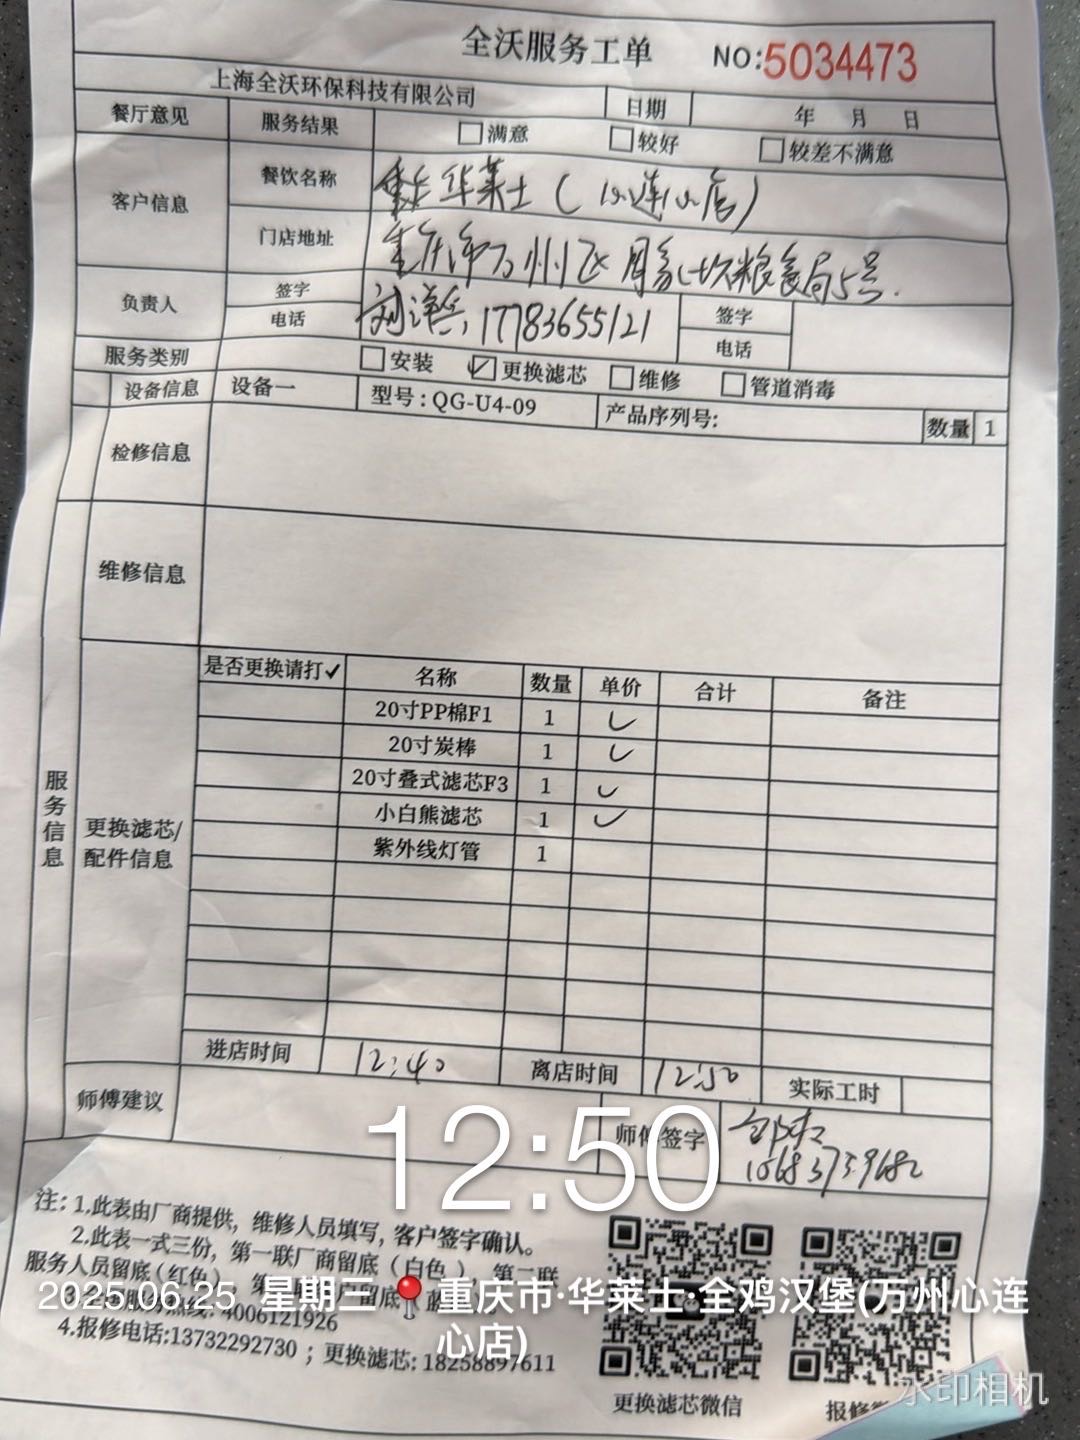 全沃服务工单 NO:5034473
上海全沃环保科技有限公司 日期 年 月 日
餐厅意见 服务结果 满意 较好 较差不满意
客户信息 餐饮名称 重庆华莱士(心连心店)
门店地址 重庆市万州区周家坎粮食局5号.
负责人 签字 刘洋兵 签字
电话 17783655121 电话
服务类别 安装 ✓更换滤芯 维修 管道消毒
设备信息 设备一 型号:QG-U4-09 产品序列号: 数量 1
检修信息
维修信息
服务信息
更换滤芯/
配件信息
是否更换请打✓ 名称 数量 单价 合计 备注
20寸PP棉F1 1 ✓
20寸炭棒 1 ✓
20寸叠式滤芯F3 1 ✓
小白熊滤芯 1 ✓
紫外线灯管 1
进店时间 12:40 离店时间 12:50 实际工时
师傅建议 师傅签字
12:50
注: 1.此表由厂商提供，维修人员填写，客户签字确认。
2.此表一式三份，第一联厂商留底（白色），第二联
服务人员留底(红色)
4006121926
2025.06.25 星期三 重庆市·华莱士·全鸡汉堡(万州心连
心店)
4.报修电话:13732292730 ；更换滤芯: 18258897611
更换滤芯微信 报修
水印相机